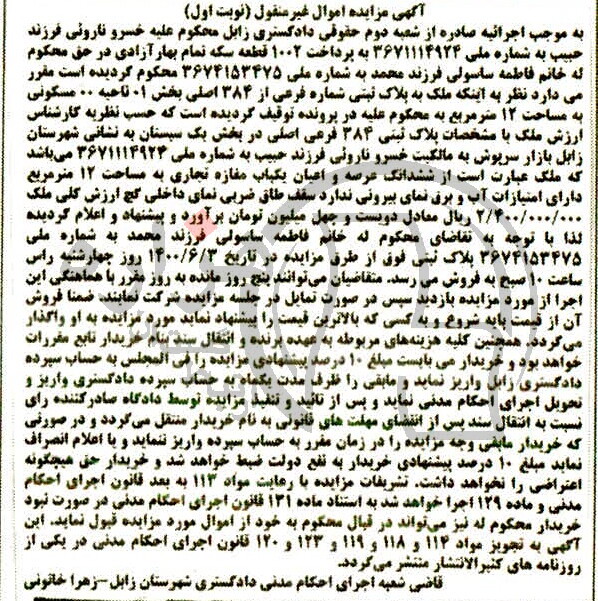 آگهی مزایده اموال غیرمنقول (نوبت اول)
به موجب اجرائیه صادره از شعبه دوم حقوقی دادگستری زابل محکوم علیه خسرو ناروئی فرزند
حبیب به شماره ملی ۳۶۷۱۱۱۴۹۲۴ به پرداخت ۱۰۰۲ قطعه سکه تمام بهارآزادی در حق محکوم
له خانم فاطمه ساسولی فرزند محمد به شماره ملی ۳۶۷۴۱۵۳۴۷۵ محکوم گردیده است مقرر
می دارد نظر به اینکه ملک به پلاک ثبتی شماره فرعی از ۳۸۴ اصلی بخش ۰۱ ناحیه ۰۰ مسکونی
به مساحت ۱۲ مترمربع به محکوم علیه در پرونده توقیف گردیده است که حسب نظریه کارشناس
ارزش ملک با مشخصات پلاک ثبتی ۳۸۴ فرعی اصلی در بخش یک سیستان به نشانی شهرستان
زابل بازار سرپوش به مالکیت خسرو ناروئی فرزند حبیب به شماره ملی ۳۶۷۱۱۱۴۹۲۴ می‌باشد
که ملک عبارت است از ششدانگ عرصه و اعیان یکباب مغازه تجاری به مساحت ۱۲ مترمربع
دارای امتیازات آب و برق نمای بیرونی ندارد سقف طاق ضربی نمای داخلی گچ ارزش کلی ملک
۲/۴۰۰/۰۰۰/۰۰۰ ریال معادل دویست و چهل میلیون تومان برآورد و پیشنهاد و اعلام گردیده
لذا با توجه به تقاضای محکوم له خانم فاطمه ساسولی فرزند محمد به شماره ملی
۳۶۷۴۱۵۳۴۷۵ پلاک ثبتی فوق از طرق مزایده در تاریخ ۱۴۰۰/۶/۳ روز چهارشنبه راس
ساعت ۱۰ صبح به فروش می رسد. متقاضیان می‌توانند پنج روز مانده به روز مقرر با هماهنگی این
اجرا از مورد مزایده بازدید سپس در صورت تمایل در جلسه مزایده شرکت نمایند. ضمنا فروش
آن از قیمت پایه شروع و به کسی که بالاترین قیمت را پیشنهاد نماید مورد مزایده به او واگذار
می‌گردد. همچنین کلیه هزینه‌های مربوطه به عهده برنده و انتقال سند بنام خریدار تابع مقررات
خواهد بود و خریدار می بایست مبلغ ۱۰ درصد پیشنهادی مزایده را فی المجلس به حساب سپرده
دادگستری زابل واریز نماید و مابقی را ظرف مدت یکماه به حساب سپرده دادگستری واریز و
تحویل اجرای احکام مدنی نماید و پس از تائید و تنفیذ مزایده توسط دادگاه صادرکننده رای
نسبت به انتقال سند پس از انقضای مهلت های قانونی به نام خریدار منتقل می‌گردد و در صورتی
که خریدار مابقی وجه مزایده را در زمان مقرر به حساب سپرده واریز ننماید و یا اعلام انصراف
نماید مبلغ ۱۰ درصد پیشنهادی خریدار به نفع دولت ضبط خواهد شد و خریدار حق هیچگونه
اعتراضی را نخواهد داشت. تشریفات مزایده با رعایت مواد ۱۱۳ به بعد قانون اجرای احکام
مدنی و ماده ۱۲۹ اجرا خواهد شد به استناد ماده ۱۳۱ قانون اجرای احکام مدنی در صورت نبود
خریدار محکوم له نیز می‌تواند در قبال محکوم به خود از اموال مورد مزایده قبول نماید. این
آگهی به تجویز مواد ۱۱۴ و ۱۱۸ و ۱۱۹ و ۱۲۳ و ۱۲۰ قانون اجرای احکام مدنی در یکی از
روزنامه های کثیرالانتشار منتشر می‌گردد.
قاضی شعبه اجرای احکام مدنی دادگستری شهرستان زابل –زهرا خاتونی